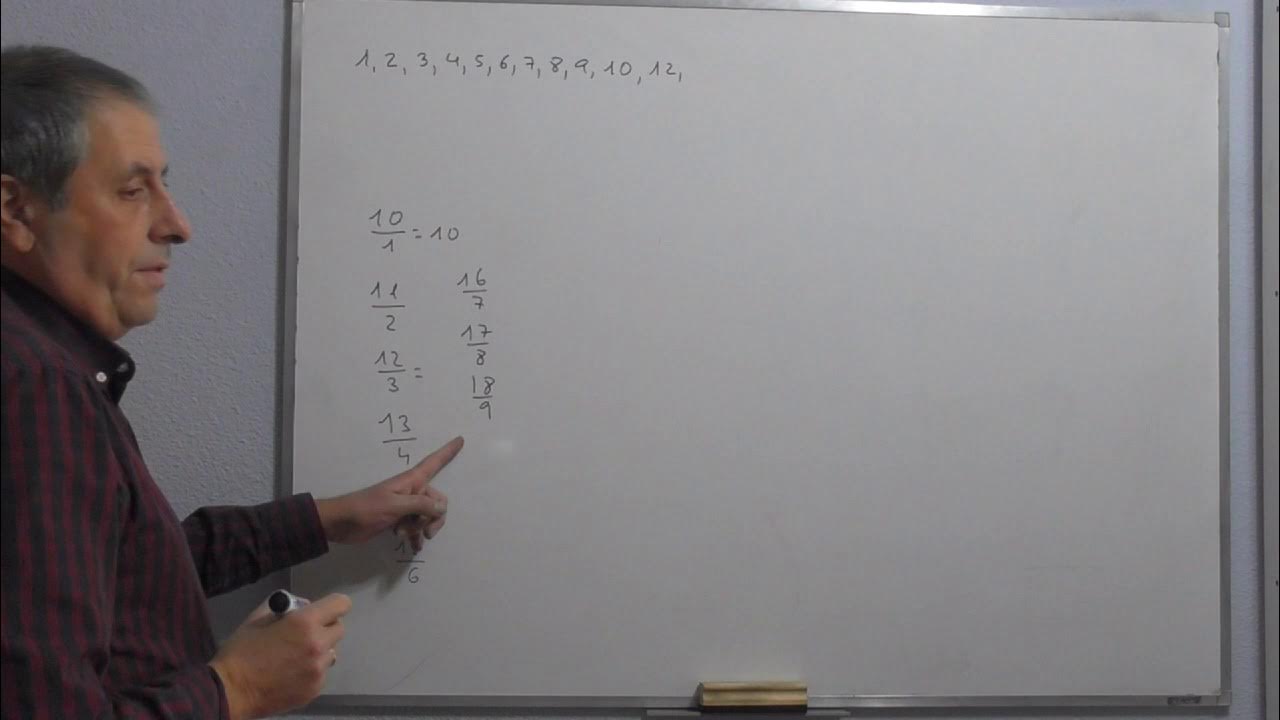 1, 2, 3, 4, 5, 6, 7, 8, 9, 10, 12,
10/1 = 10
11/2
12/3 =
13/4
6
16/7
17/8
18/9